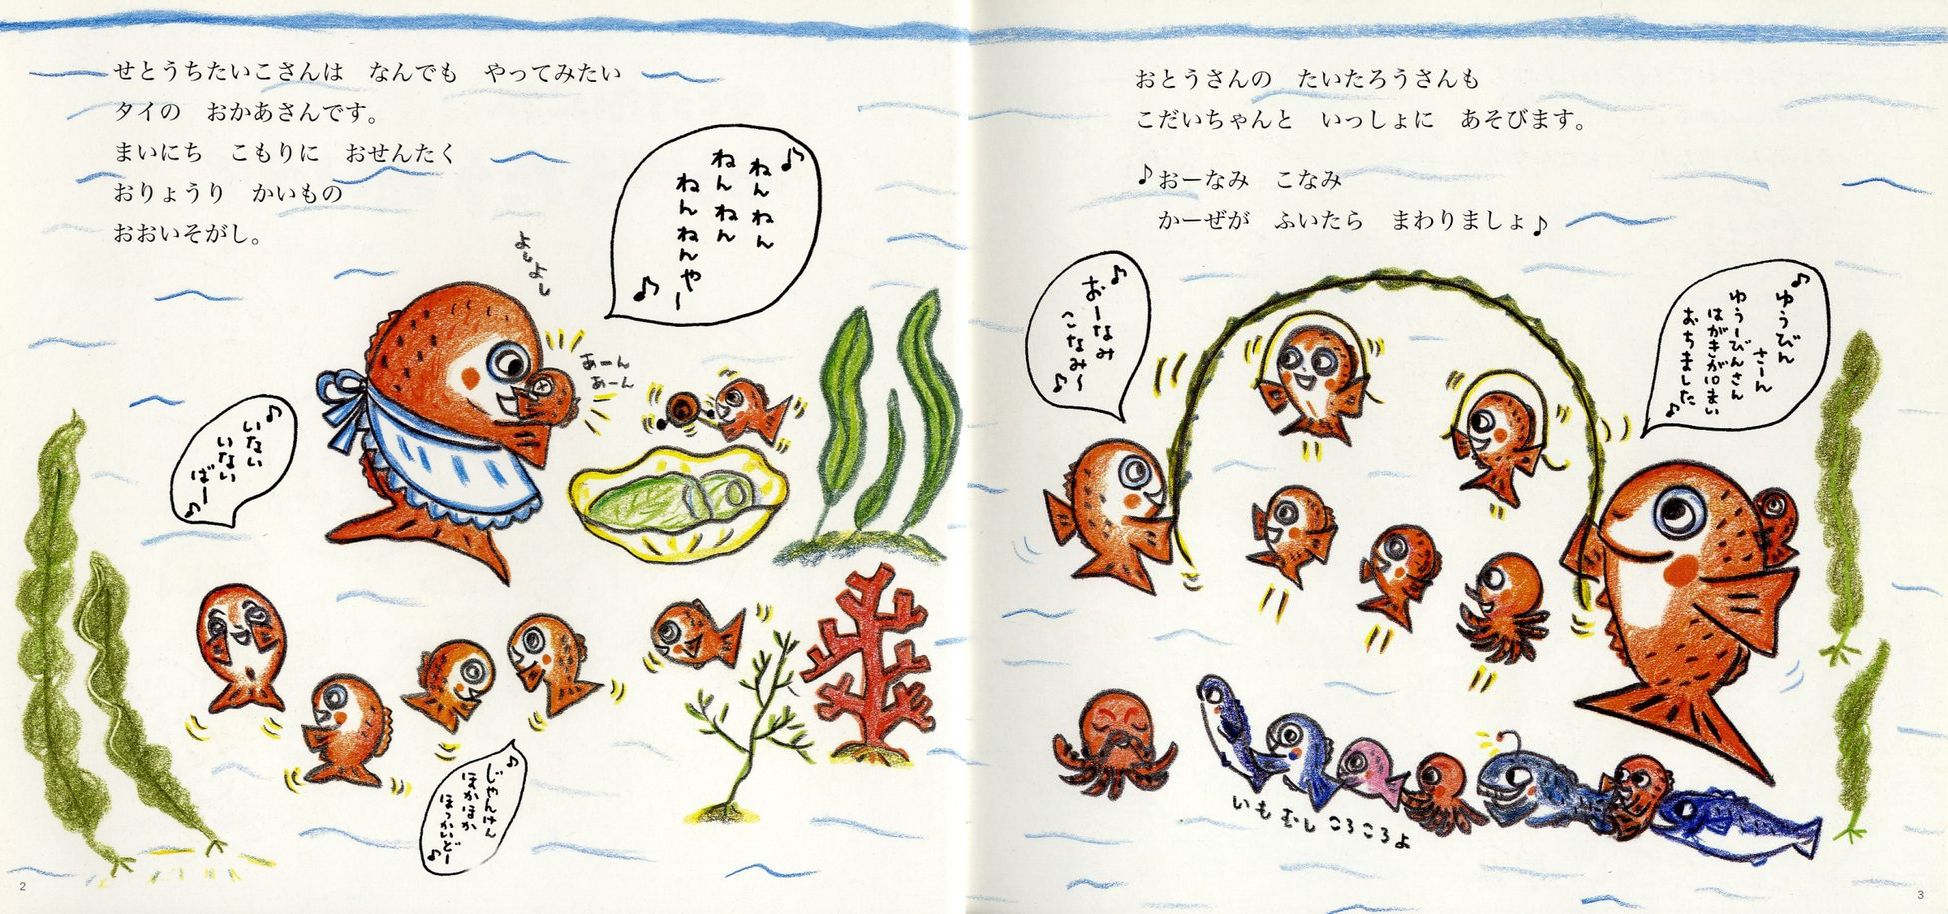 せとうちたいこさんは　なんでも　やってみたい
タイの　おかあさんです。
まいにち　こもりに　おせんたく
おりょうり　かいもの
おおいそがし。
♪ねんねん
ねんねん
ねんねんやー♪
よしよし
あーん
あーん
♪いない
いない
ばー♪
♪じゃんけん
ほかほか
ほっかいどー♪
2
おとうさんの　たいたろうさんも
こだいちゃんと　いっしょに　あそびます。
♪おーなみ　こなみ
かーぜが　ふいたら　まわりましょ♪
♪おーなみ
こなみ〜♪
♪ゆうびん
さーん
ゆうーびんさん
はがきが10まい
おちました♪
いもむし ころころよ
3